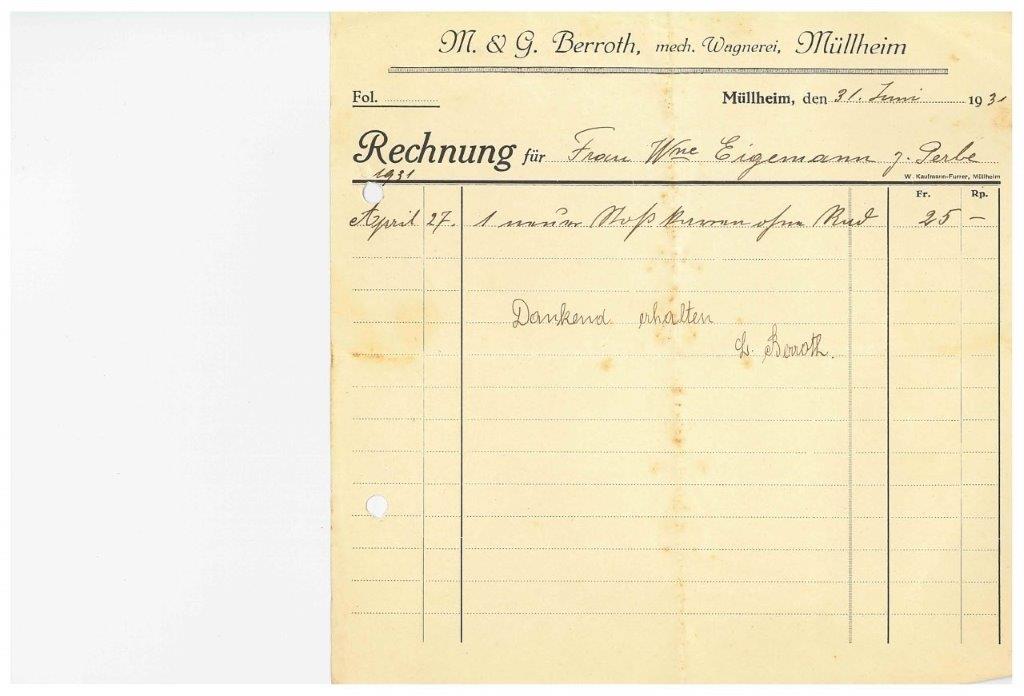 M. & G. Berroth, mech. Wagnerei, Müllheim
Fol.
Müllheim, den 31. Juni 1931
Rechnung für Frau Wne Eigemann z.
W. Kaufmann-Furrer, Müllheim
1931
Fr. Rp.
April 27. 1 neuer Stoßkarren ohne Rad 25 –
Dankend erhalten
Berroth.